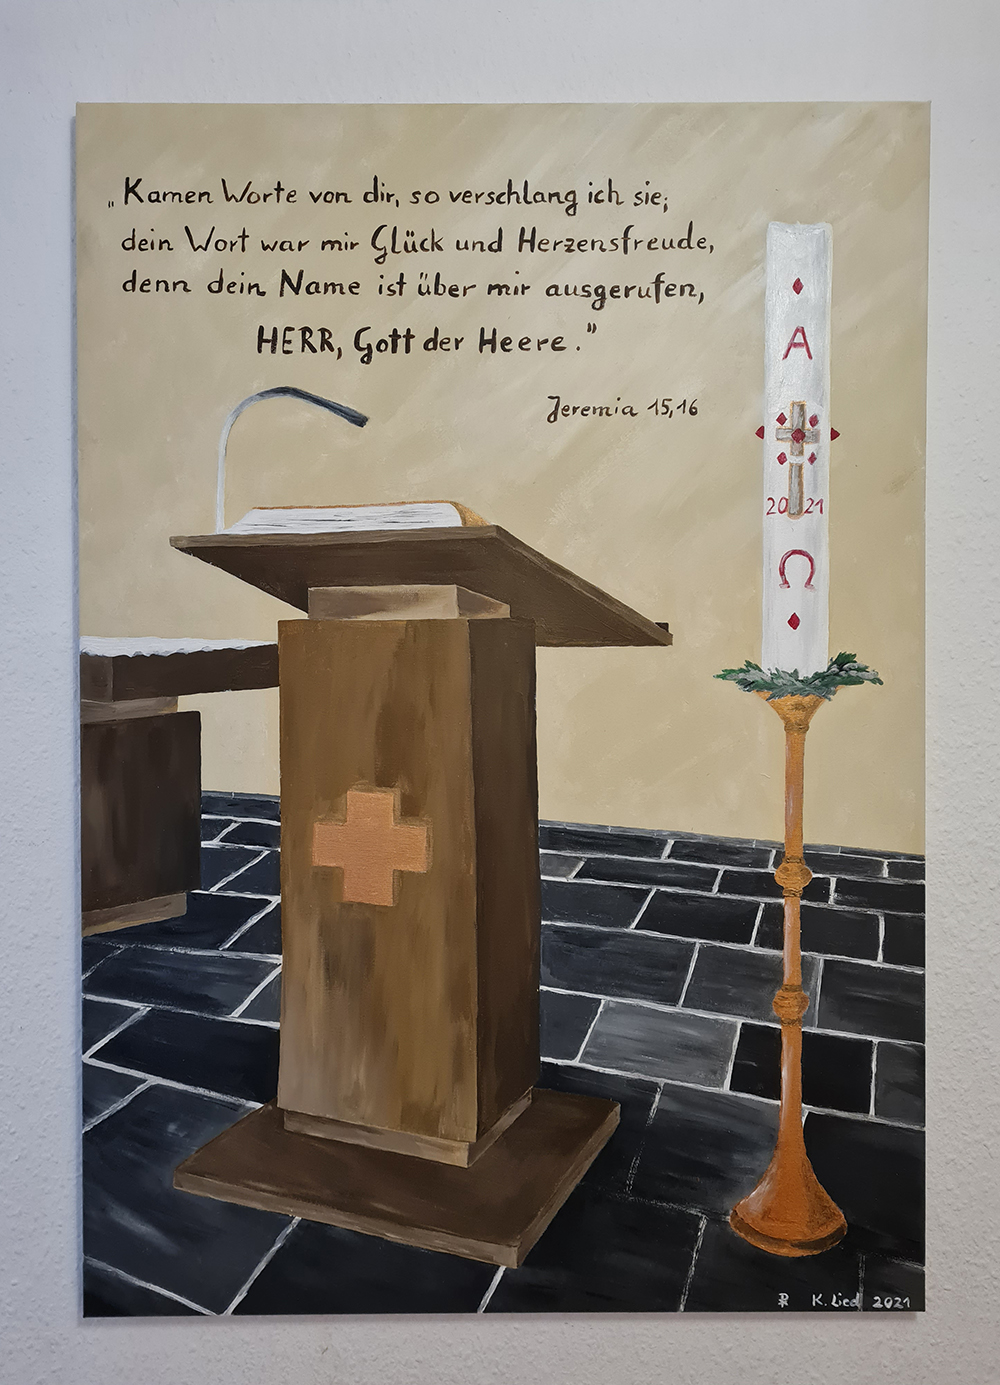 „Kamen Worte von dir, so verschlang ich sie;
dein Wort war mir Glück und Herzensfreude,
denn dein Name ist über mir ausgerufen,
HERR, Gott der Heere."
Jeremia 15,16
A
20 21
Ω
K. Lied 2021